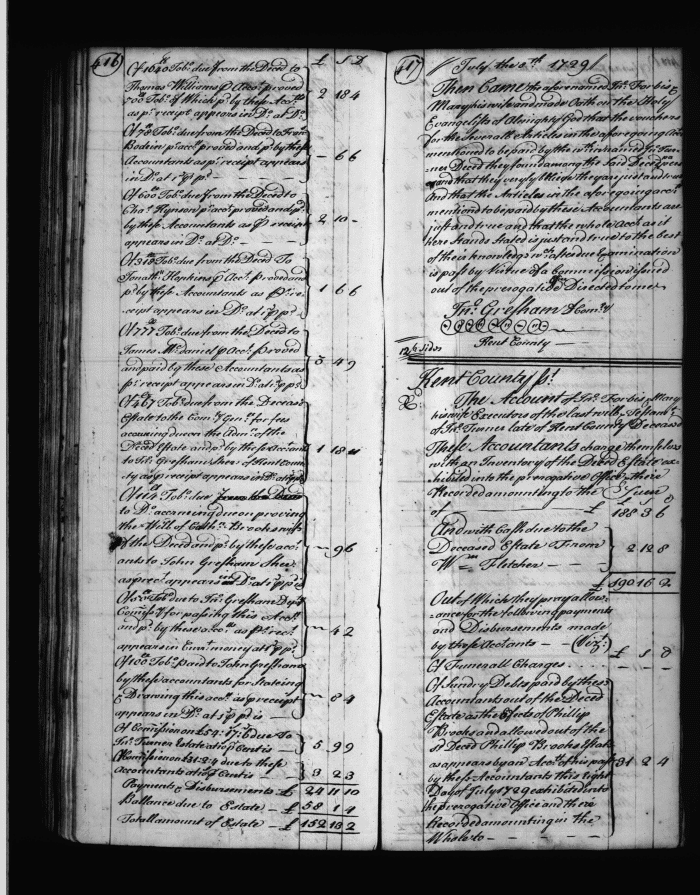 416
£ S D
Of 1040 Tob.o due from the Deced to
Thomas Williams p Acco.t proved
700 Tob.o of Which p.d by these Acc.ts
as p.r receipt appears in D.o at D.o
2 18 4
Of 78 Tob.o due from the Deced to
Bodein p.r acc.t proved and p.d by these
Accountants as p.r receipt appears
in D.o at 1.d p p.d
– 6 6
Of 600 Tob.o due from the Deced to
Cha.s Hynson p.r acco.t proved and p.d
by these Accountants as p receipt
appears in D.o at D.o
2 10 –
Of 318 Tob.o due from the Deced To
Jonath.n Hopkins p Acc.t proved and
p.d by these Accountants as p.r re-
ceipt appears in D.o at 1.d p p.d
1 6 6
Of 777 Tob.o due from the Deced to
James M.cdaniel p Acco.t proved
and paid by these Accountants as
p.r receipt appears in D.o at 1.d p p.d
3 4 9
Of 467 Tob.o due from the Deceas.d
Estate to the Com.y Gen.l for fees
accruing due on the Adm.n of the
Deced Estate and p.d by these Accountants
to Jn.o Gresham Sher.f of Kent Coun-
ty as p receipt appears in D.o
1 18
Tob.o due
to D.o accrueing due on proving
the Will of Cath.n Brooks wife
of the Deced and p.d by these acco.t
ants to John Gresham Sher
as p rec.t appears in D.o at 1.d p p.d
– 9 6
Of 50 Tob.o due to Jn.o Gresham Dep.ty
Comiss.y for passing this Acco.t
and p.d by these acc.ts as p.r rec.t
appears in Curr.t money at 1.d p p.d
– 4 2
Of 100 Tob.o paid to John Gresham
by these accountants for Stateing
& Drawing this acc.t as p receipt
appears in D.o at 1.d p p.d is
– 8 4
Of Comission on £54:17:6 due To
Jn.o Turner Estate at 10 p Centis
5 9 9
Comission on £31:2:4 due to these
Accountants at 10 p Centis
3 2 3
Payments & Disbursements £ 24 11 10
Ballance due to Estate £ 58 1 4
Totall amount of Estate £ 152 13 2
417
July the 8.th 1729
Then Came the aforenamed Jn.o Forbis &
Mary his wife and made Oath on the Holy
Evangelists of Almighty God that the vouchers
for the Severall Articles in the afore going Acco.t
mentioned to be paid by the w.th named Jn.o Tur-
-ner Deced they found among the Said Deced papers
and that they veryly believe they are just and true
And that the Articles in the afore going acco.t
mention.d to be paid by these Accountants are
just and true and that the whole Acco.t as it
Here Stands Stated is just and true to the best
of their knowledge w.ch after due Examination
is pass.t by Virtue of a Commission issued
out of the prerogative Directed to me
Jn.o Gresham D Com.ry
Kent County
12 6 sides
Kent County ss.t
The Account of Jn.o Forbis & Mary
his wife Executors of the last will & Testam.t
of Jn.o Turner late of Kent County Deceased
These Accountants charge themselves
with an Inventory of the Deced Estate ex-
hibited into the prerogative Office there
Recorded amounting to the Sum
of £ 188 3 6
And with Cash due to the
Deceased Estate From
W.m Fletcher
2 12 8
£ 190 16 2
Out of Which they pray allow-
-ance for the following payments
and Disbursements made
by these Acctants (Viz.t)
£ S D
Of Funerall Charges
Of Sundry Debts paid by these
Accountants out of the Deced
Estate as the Effects of Phillip
Brooks and allowed out of the
s.d Deced Phillip Brooks Estate
as appears by an Acco.t of his past
by these Accountants this Eight
Day of July 1729 exhibited into
the prerogative Office and there
Recorded amounting in the
Whole to
31 2 4